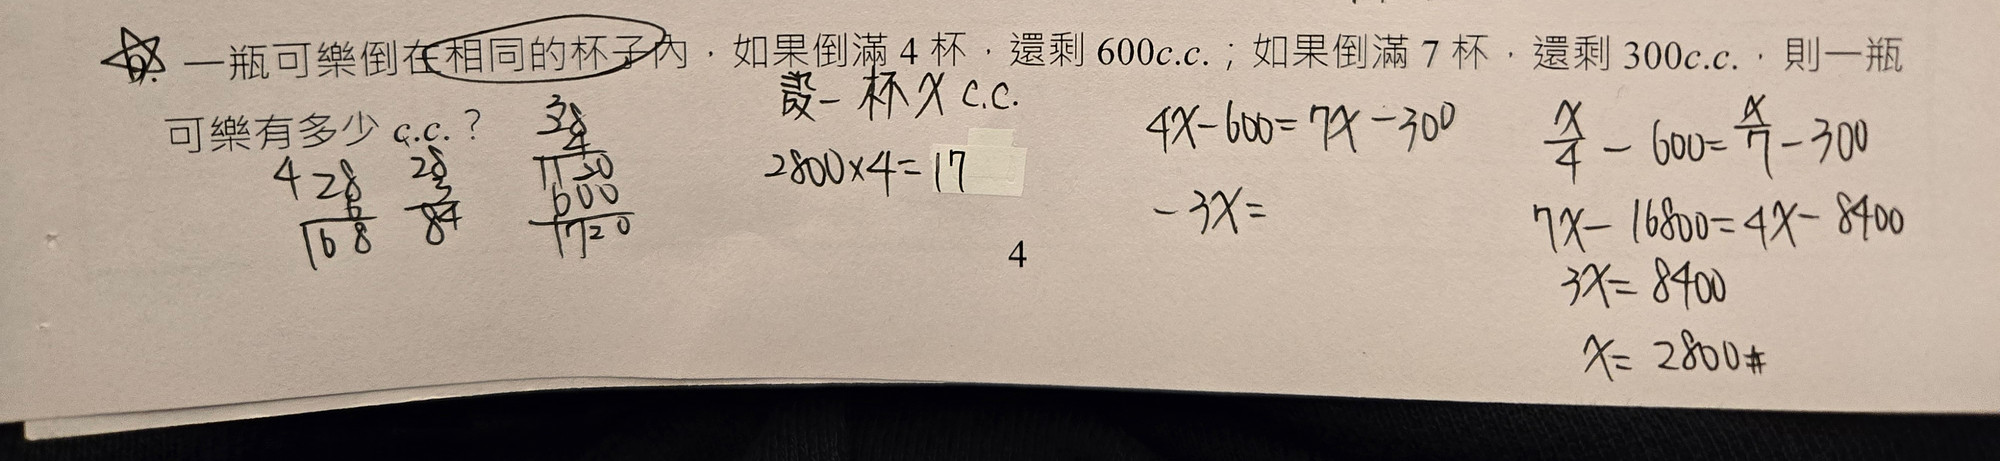 6. 一瓶可樂倒在相同的杯子內，如果倒滿 4 杯，還剩 600c.c.；如果倒滿 7 杯，還剩 300c.c.，則一瓶
可樂有多少 c.c.？
設一杯 x c.c.
2800×4=17
4x-600=7x-300
-3x=
x/4 - 600 = x/7 - 300
7x-16800=4x-8400
3x=8400
x=2800#
4 28
6
168
28
3
84
38
4
1120
600
1720
4